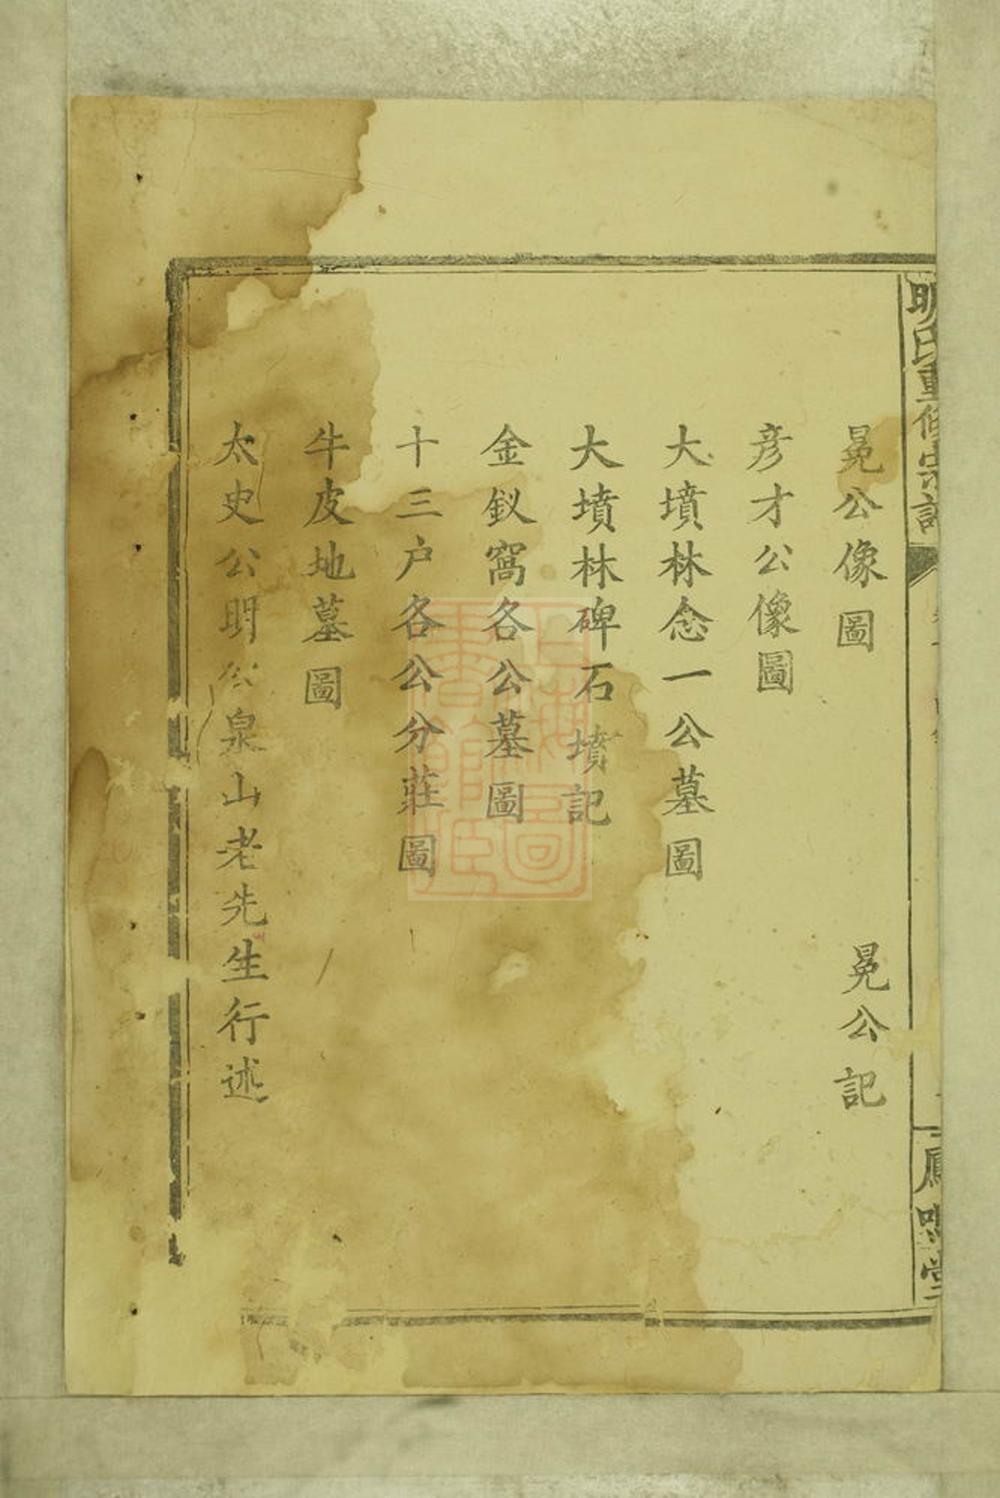 明氏重修宗譜
鳳鳴堂
冕公像圖　冕公記
彦才公像圖
大墳林念一公墓圖
大墳林碑石墳記
金釵窩各公墓圖
十三户各公分莊圖
牛皮地墓圖
太史公明公泉山老先生行述